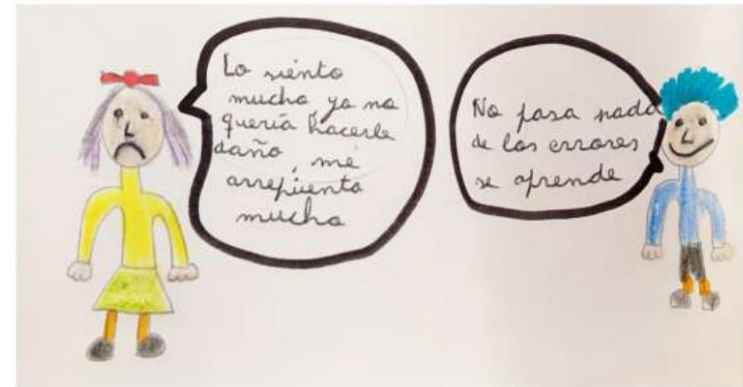 Lo siento
mucho yo no
quería hacerle
daño, me
arrepiento
mucho
No pasa nada
de los errores
se aprende